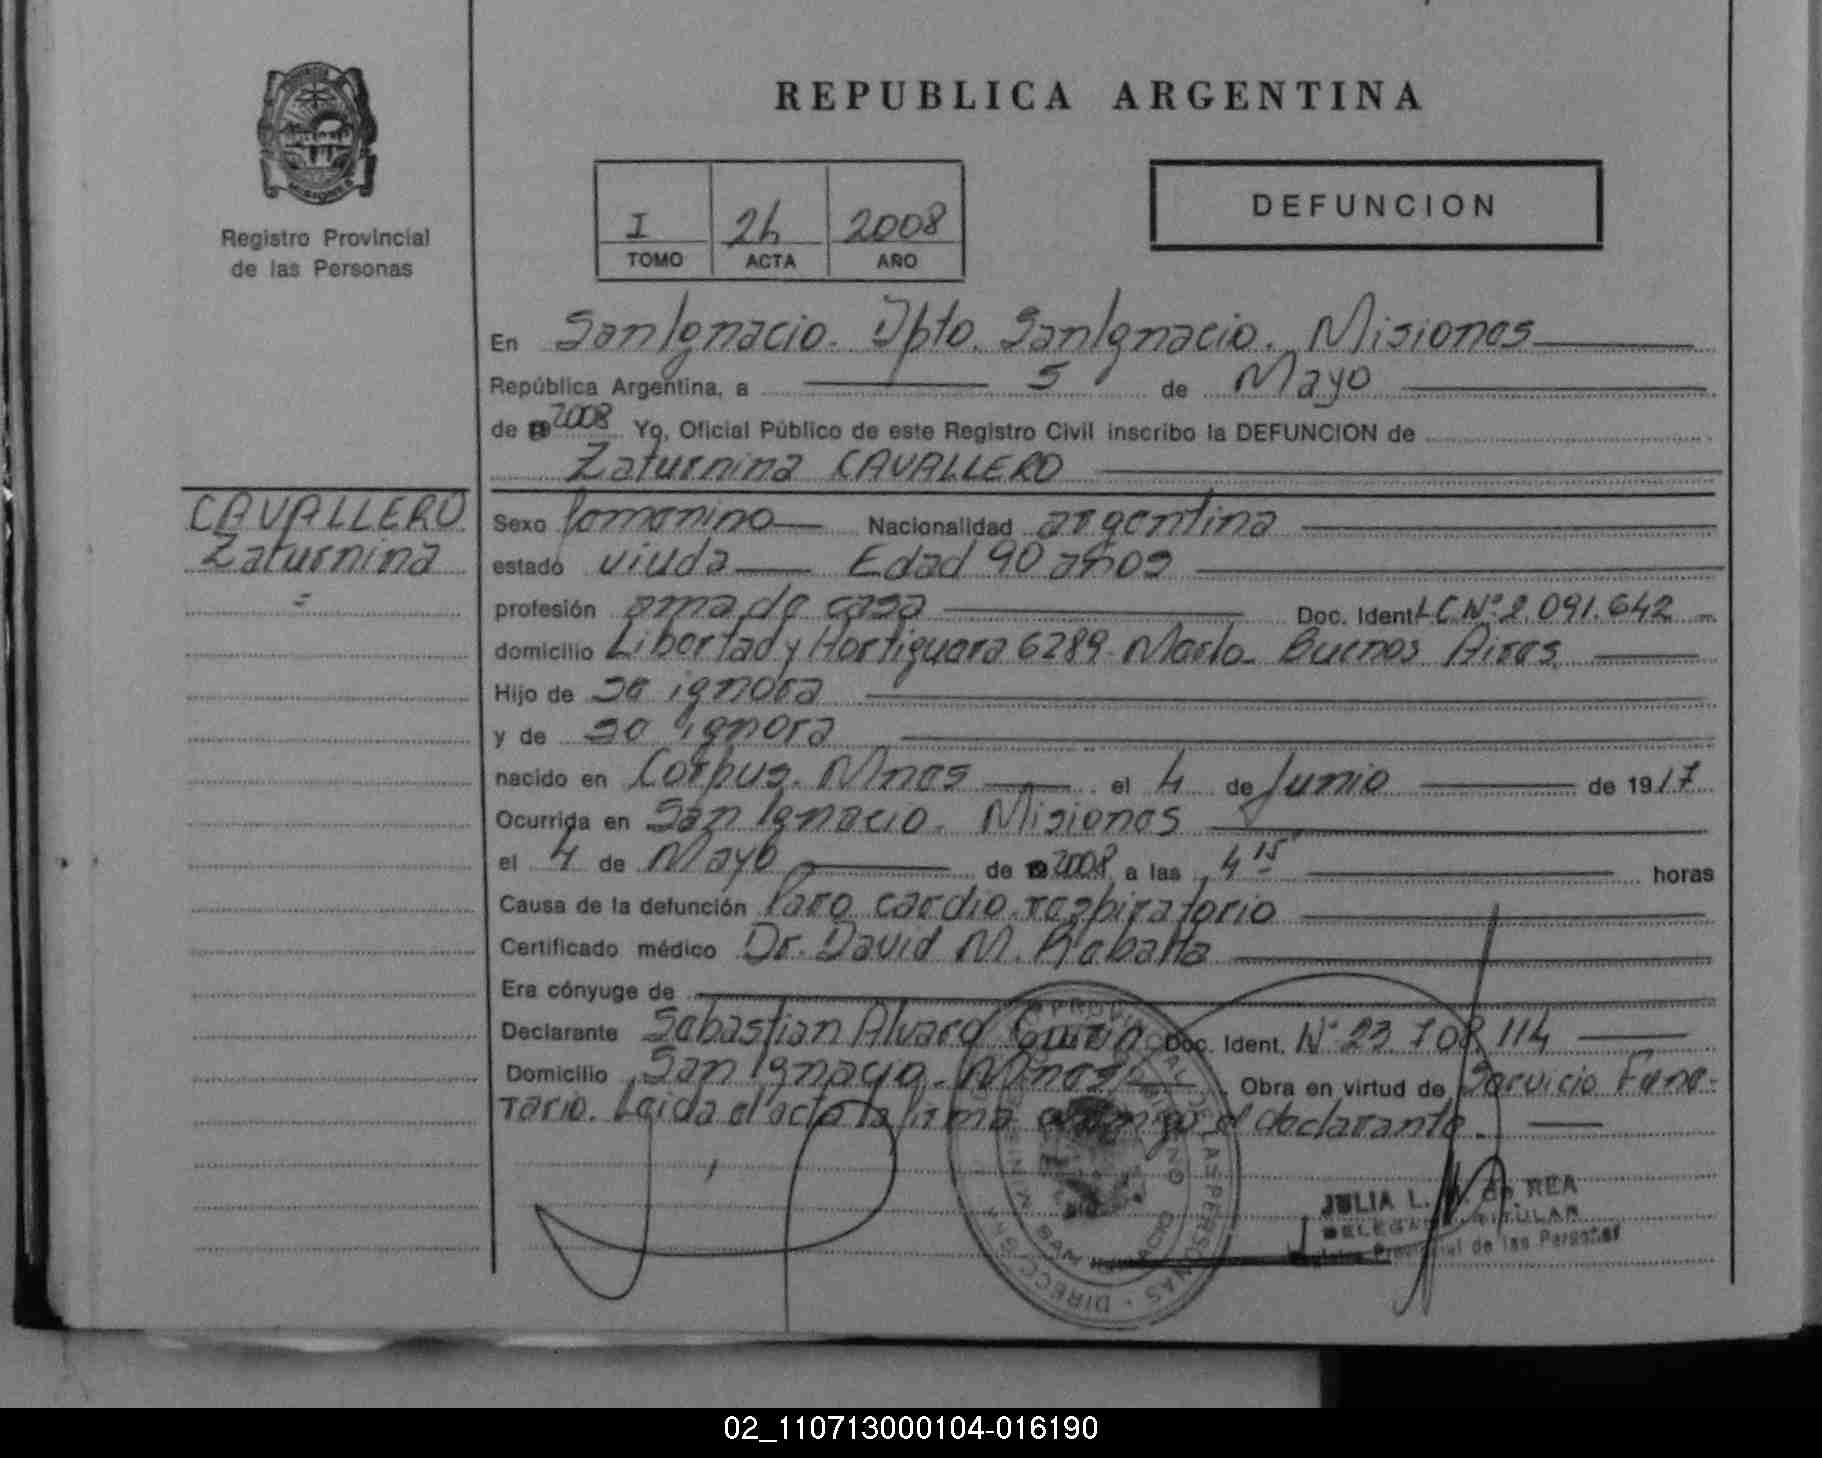 REPUBLICA ARGENTINA
Registro Provincial
de las Personas
I 24 2008
TOMO ACTA AÑO
DEFUNCION
En San Ignacio. Dpto. San Ignacio. Misiones
República Argentina, a 5 de Mayo
de 2008 Yo, Oficial Público de este Registro Civil inscribo la DEFUNCION de
Zaturnina CAVALLERO
CAVALLERO
Zaturnina
Sexo femenino Nacionalidad argentina
estado viuda Edad 90 años
profesión ama de casa Doc. Ident. L.C.Nº 2.091.642
domicilio Libertad y Hortiguera 6289. Merlo. Buenos Aires
Hijo de se ignora
y de se ignora
nacido en Corpus. Mnes el 4 de Junio de 1917
Ocurrida en San Ignacio. Misiones
el 4 de Mayo de 2008 a las 4 15 horas
Causa de la defunción Paro cardio respiratorio
Certificado médico Dr. David M.
Era cónyuge de
Declarante Sebastian Alvaro Doc. Ident. Nº 23.708.114
Domicilio San Ignacio. Mnes Obra en virtud de Servicio Fune-
rario. Leida el acta la firma conmigo el declarante.
JULIA L. de REA
DELEGADA TITULAR
Registro Provincial de las Personas
02_110713000104-016190